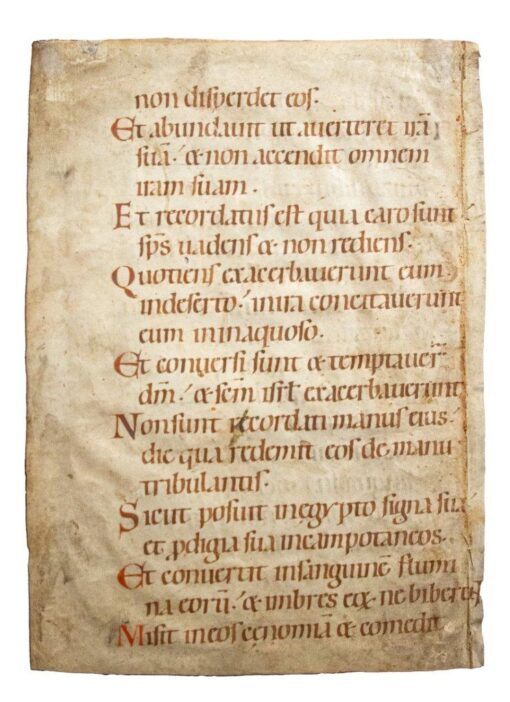 non disperdet eos.
Et abundavit ut averteret irā
suā. & non accendit omnem
iram suam.
Et recordatus est quia caro sunt
sp̄s vadens & non rediens.
Quotiens exacerbaverunt eum
indeserto. inira concitaverunt
eum ininaquoso.
Et conversi sunt & temptaver̄
dm̄. & sc̄m isrl̄ exacerbaverunt
Nonsunt recordati manus eius.
die qua redemit eos demanu
tribulantis.
Sicut posuit inegypto signa sua
et ꝓdigia sua incampotaneos.
Et convertit insanguinē flumi
na eorū. & imbres eoꝝ. ne biberent
Misit ineos cenomiā & comedit